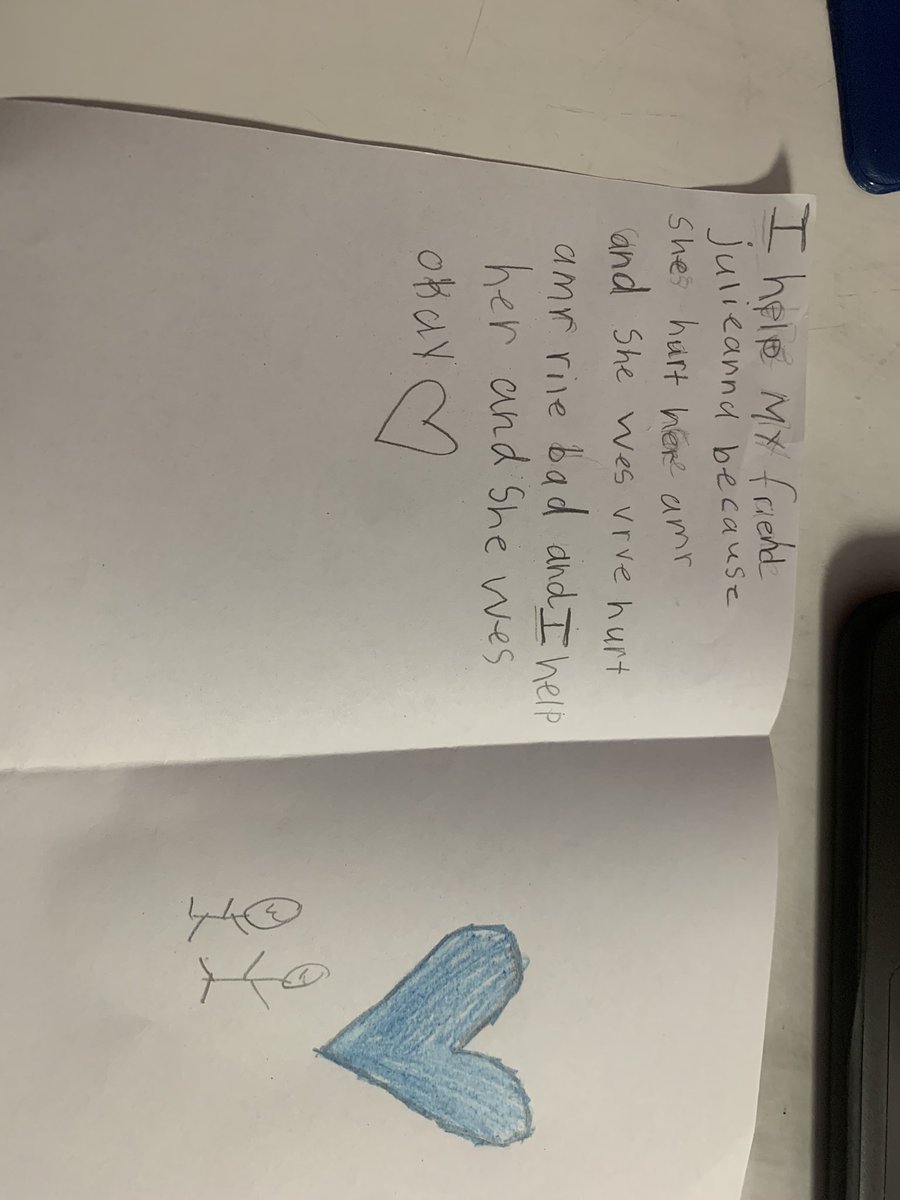 I help my friend
julieannd because
shes hurt here amr
and She wes vrve hurt
amr rile bad and I help
her and She wes
okay